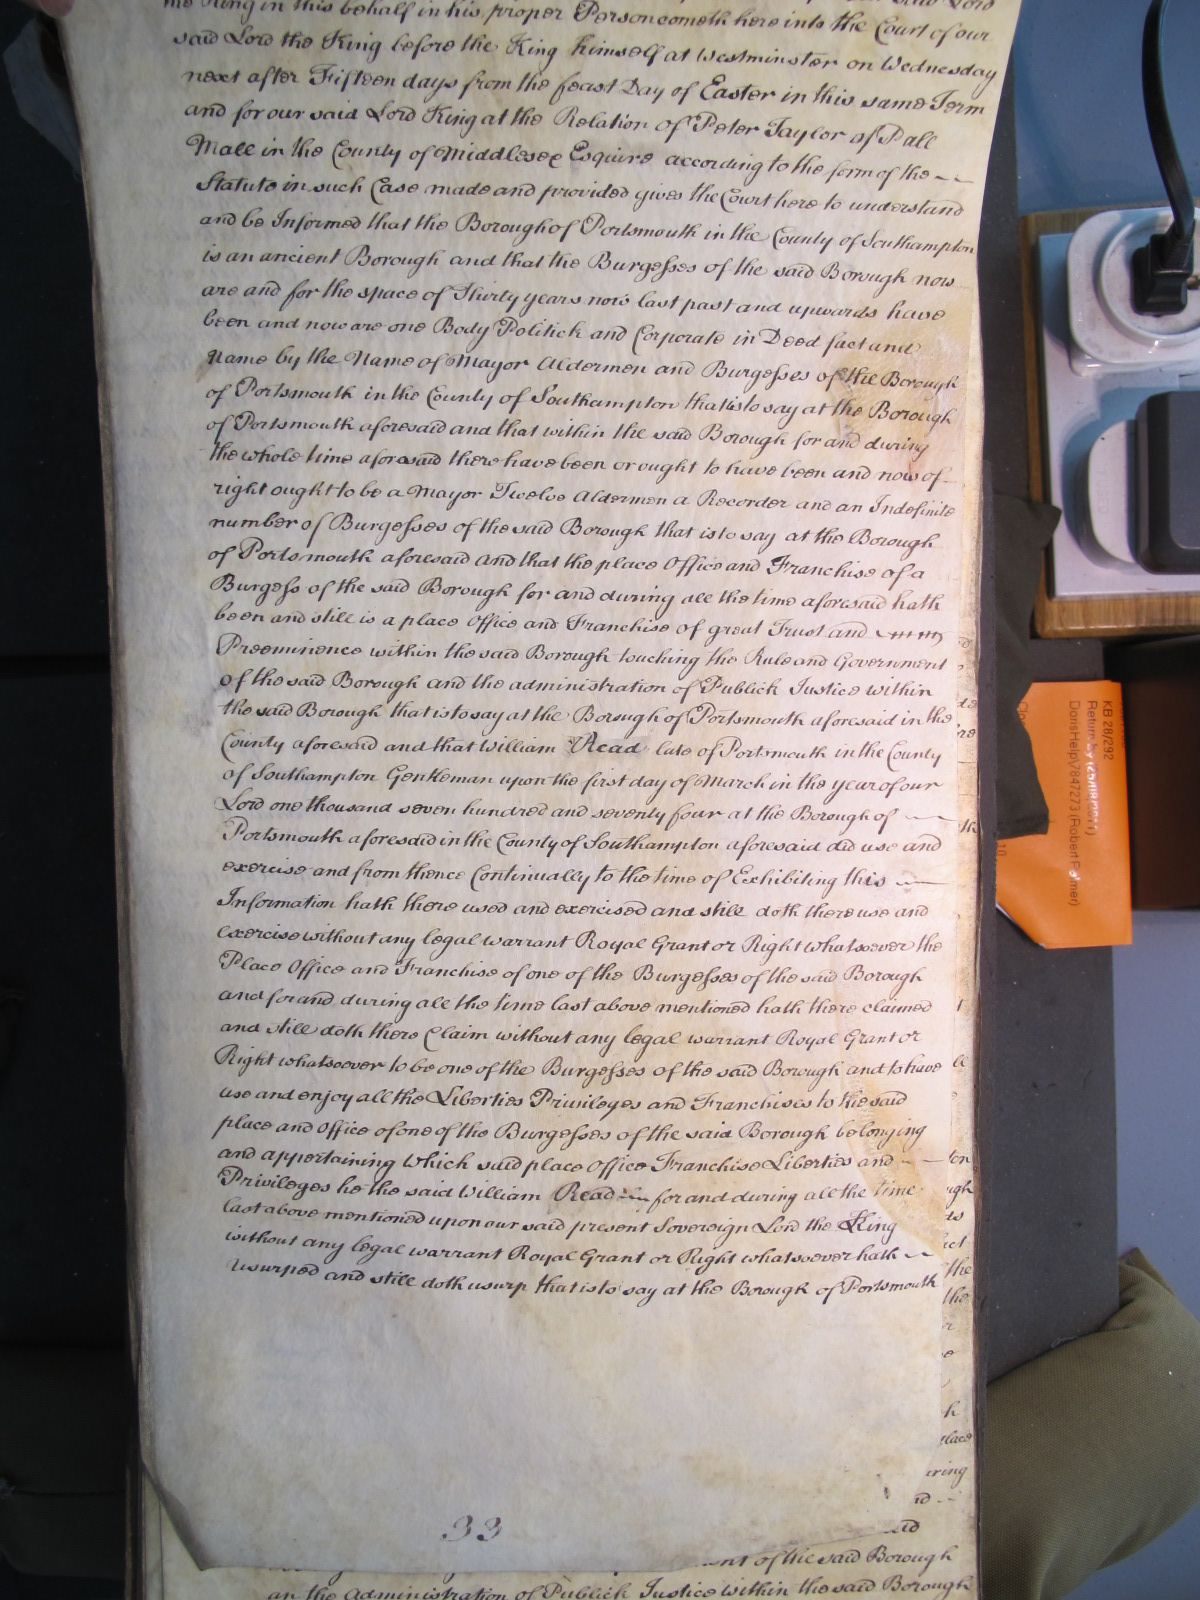 the King in this behalf in his proper Person cometh here into the Court of our
said Lord the King before the King himself at Westminster on Wednesday
next after Fifteen days from the feast Day of Easter in this same Term
and for our said Lord King at the Relation of Peter Taylor of Pall
Mall in the County of Middlesex Esquire according to the form of the
Statute in such Case made and provided gives the Court here to understand
and be Informed that the Borough of Portsmouth in the County of Southampton
is an ancient Borough and that the Burgesses of the said Borough now
are and for the space of Thirty years now last past and upwards have
been and now are one Body Politick and Corporate in Deed fact and
Name by the Name of Mayor Aldermen and Burgesses of the Borough
of Portsmouth in the County of Southampton that is to say at the Borough
of Portsmouth aforesaid and that within the said Borough for and during
the whole time aforesaid there have been or ought to have been and now of
right ought to be a Mayor Twelve Aldermen a Recorder and an Indefinite
number of Burgesses of the said Borough that is to say at the Borough
of Portsmouth aforesaid and that the place Office and Franchise of a
Burgess of the said Borough for and during all the time aforesaid hath
been and still is a place Office and Franchise of great Trust and
Preeminence within the said Borough touching the Rule and Government
of the said Borough and the administration of Publick Justice within
the said Borough that is to say at the Borough of Portsmouth aforesaid in the
County aforesaid and that William Read late of Portsmouth in the County
of Southampton Gentleman upon the first day of March in the year of our
Lord one thousand seven hundred and seventy four at the Borough of
Portsmouth aforesaid in the County of Southampton aforesaid did use and
exercise and from thence Continually to the time of Exhibiting this
Information hath there used and exercised and still doth there use and
exercise without any legal warrant Royal Grant or Right whatsoever the
Place Office and Franchise of one of the Burgesses of the said Borough
and for and during all the time last above mentioned hath there claimed
and still doth there Claim without any legal warrant Royal Grant or
Right whatsoever to be one of the Burgesses of the said Borough and to have
use and enjoy all the Liberties Privileges and Franchises to the said
place and Office of one of the Burgesses of the said Borough belonging
and appertaining which said place Office Franchise Liberties and
Privileges he the said William Read for and during all the time
last above mentioned upon our said present Sovereign Lord the King
without any legal warrant Royal Grant or Right whatsoever hath
usurped and still doth usurp that is to say at the Borough of Portsmouth
33
of the said Borough
an the Administration of Publick Justice within the said Borough
KB 28/292
Return by
DorisHelp\847273 (Robert Palmer)